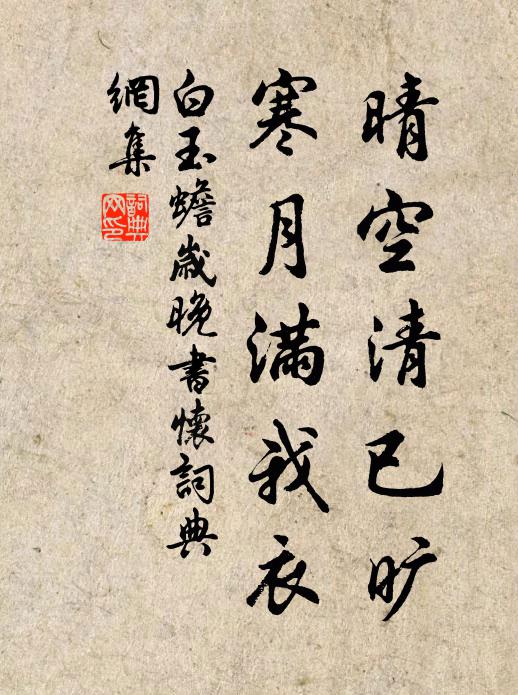 晴空清已旷
寒月满我衣
白玉蟾歲晚書懷詞典
網集
詞典網印